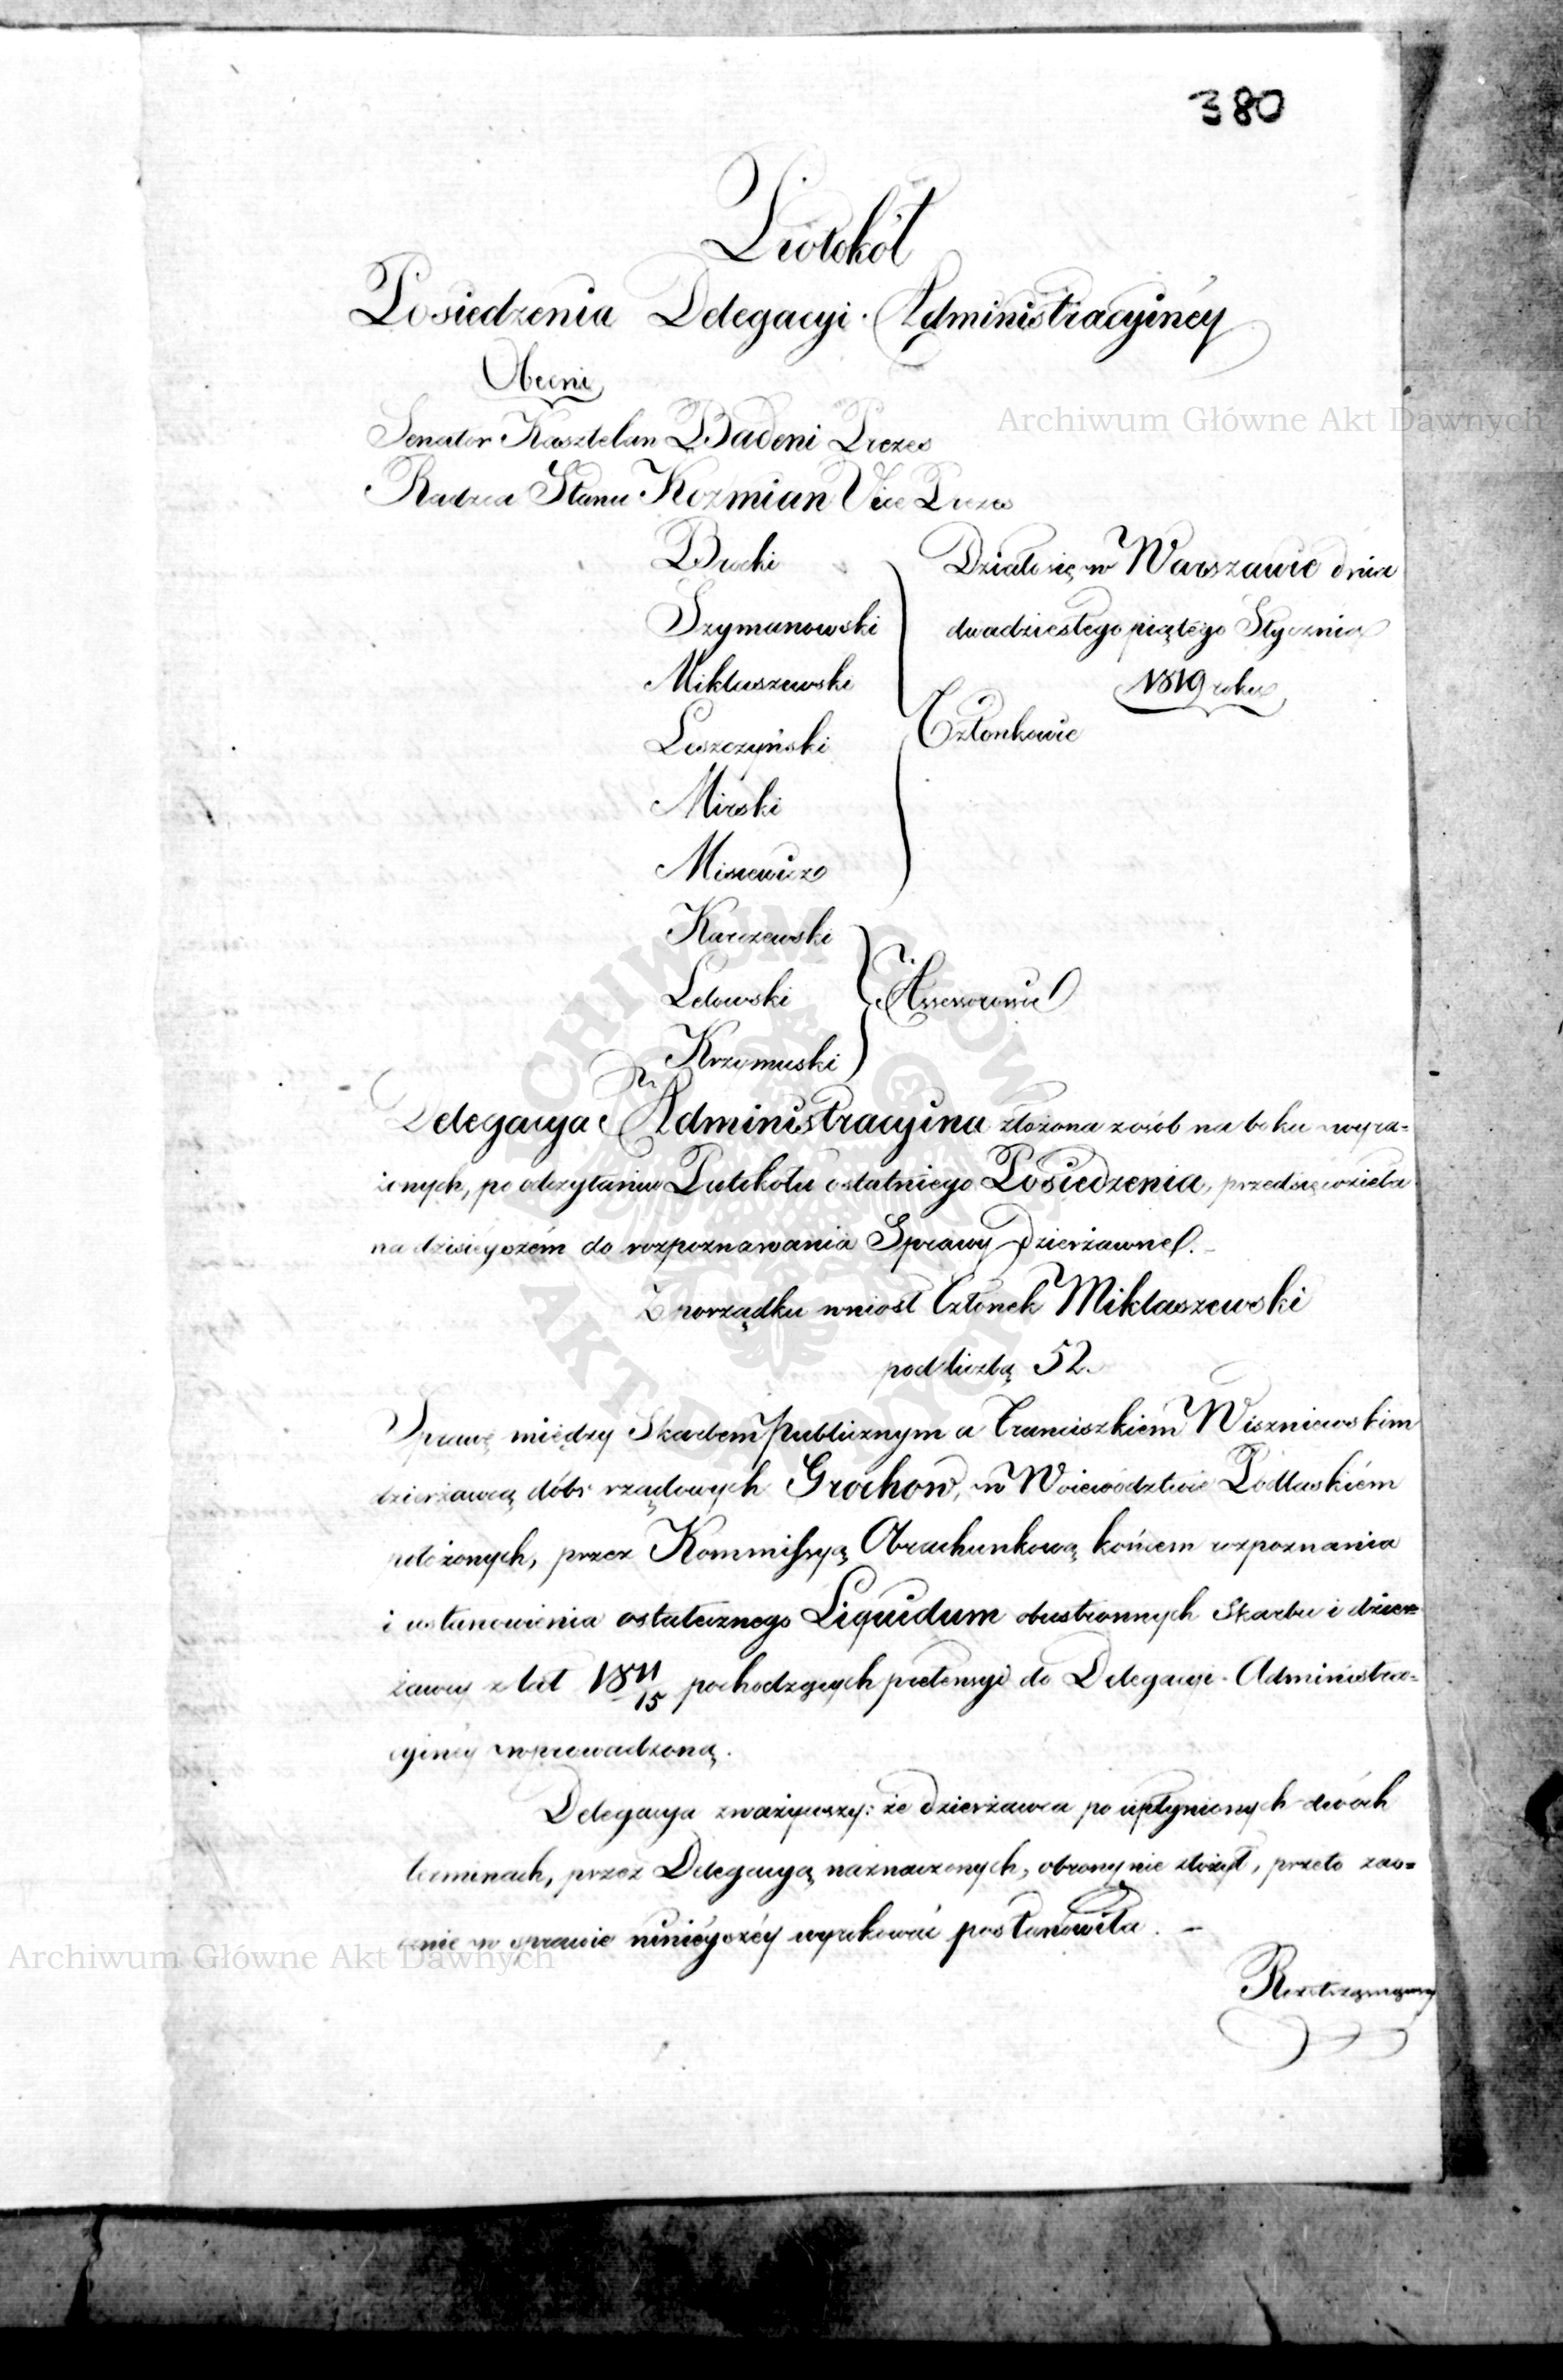 380
Protokół
Posiedzenia Delegacyi Administracyinéy
Obecni
Senator Kasztelan Badeni Prezes
Radzca Stanu Kozmian Vice Prezes
Brocki
Szymanowski
Miklaszewski
Leszczyński
Mirski
Misiewicz
Członkowie
Działo się w Warszawie dnia
dwadziestego piątego Stycznia
1819 roku
Karczewski
Ledowski
Krzymuski
Assessorowie
Delegacya Administracyina złożona z osób na boku wyra=
żonych, po odczytaniu Protokołu ostatniego Posiedzenia, przedsięwzieła
na dzisieyszém do rozpoznawania Sprawy Dzierżawne.
Z porządku wniosł Członek Miklaszewski
pod liczbą 52.
Sprawę między Skarbem Publicznym a Franciszkiem Wiszniewskim
dzierżawcą dóbr rządowych Grochow, w Woiewództwie Podlaskiém
położonych, przez Kommissyą Obrachunkową końcem rozpoznania
i ustanowienia ostatecznego Liquidum obustronnych Skarbu i dzier=
żawcy z lat 1811/15 pochodzących pretensyi do Delegacyi Administra=
cyinéy wprowadzoną.
Delegacya zważywszy: że dzierżawca po upłynionych dwóch
terminach, przez Delegacyą naznaczonych, obrony nie złożył, przeto zao=
cznie w sprawie ninieyszéy wyrokować postanowiła. —
Archiwum Główne Akt Dawnych
Archiwum Główne Akt Dawnych